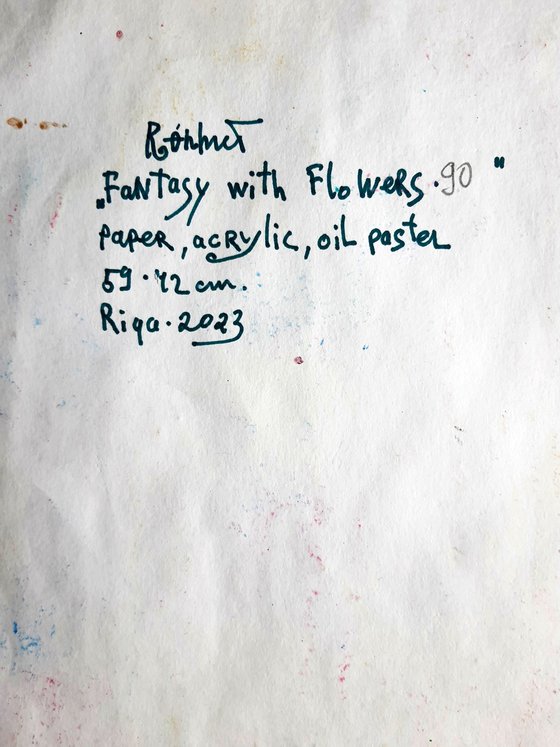 „Fantasy with Flowers.90"
paper, acrylic, oil pastel
59.42 cm.
Riga.2023